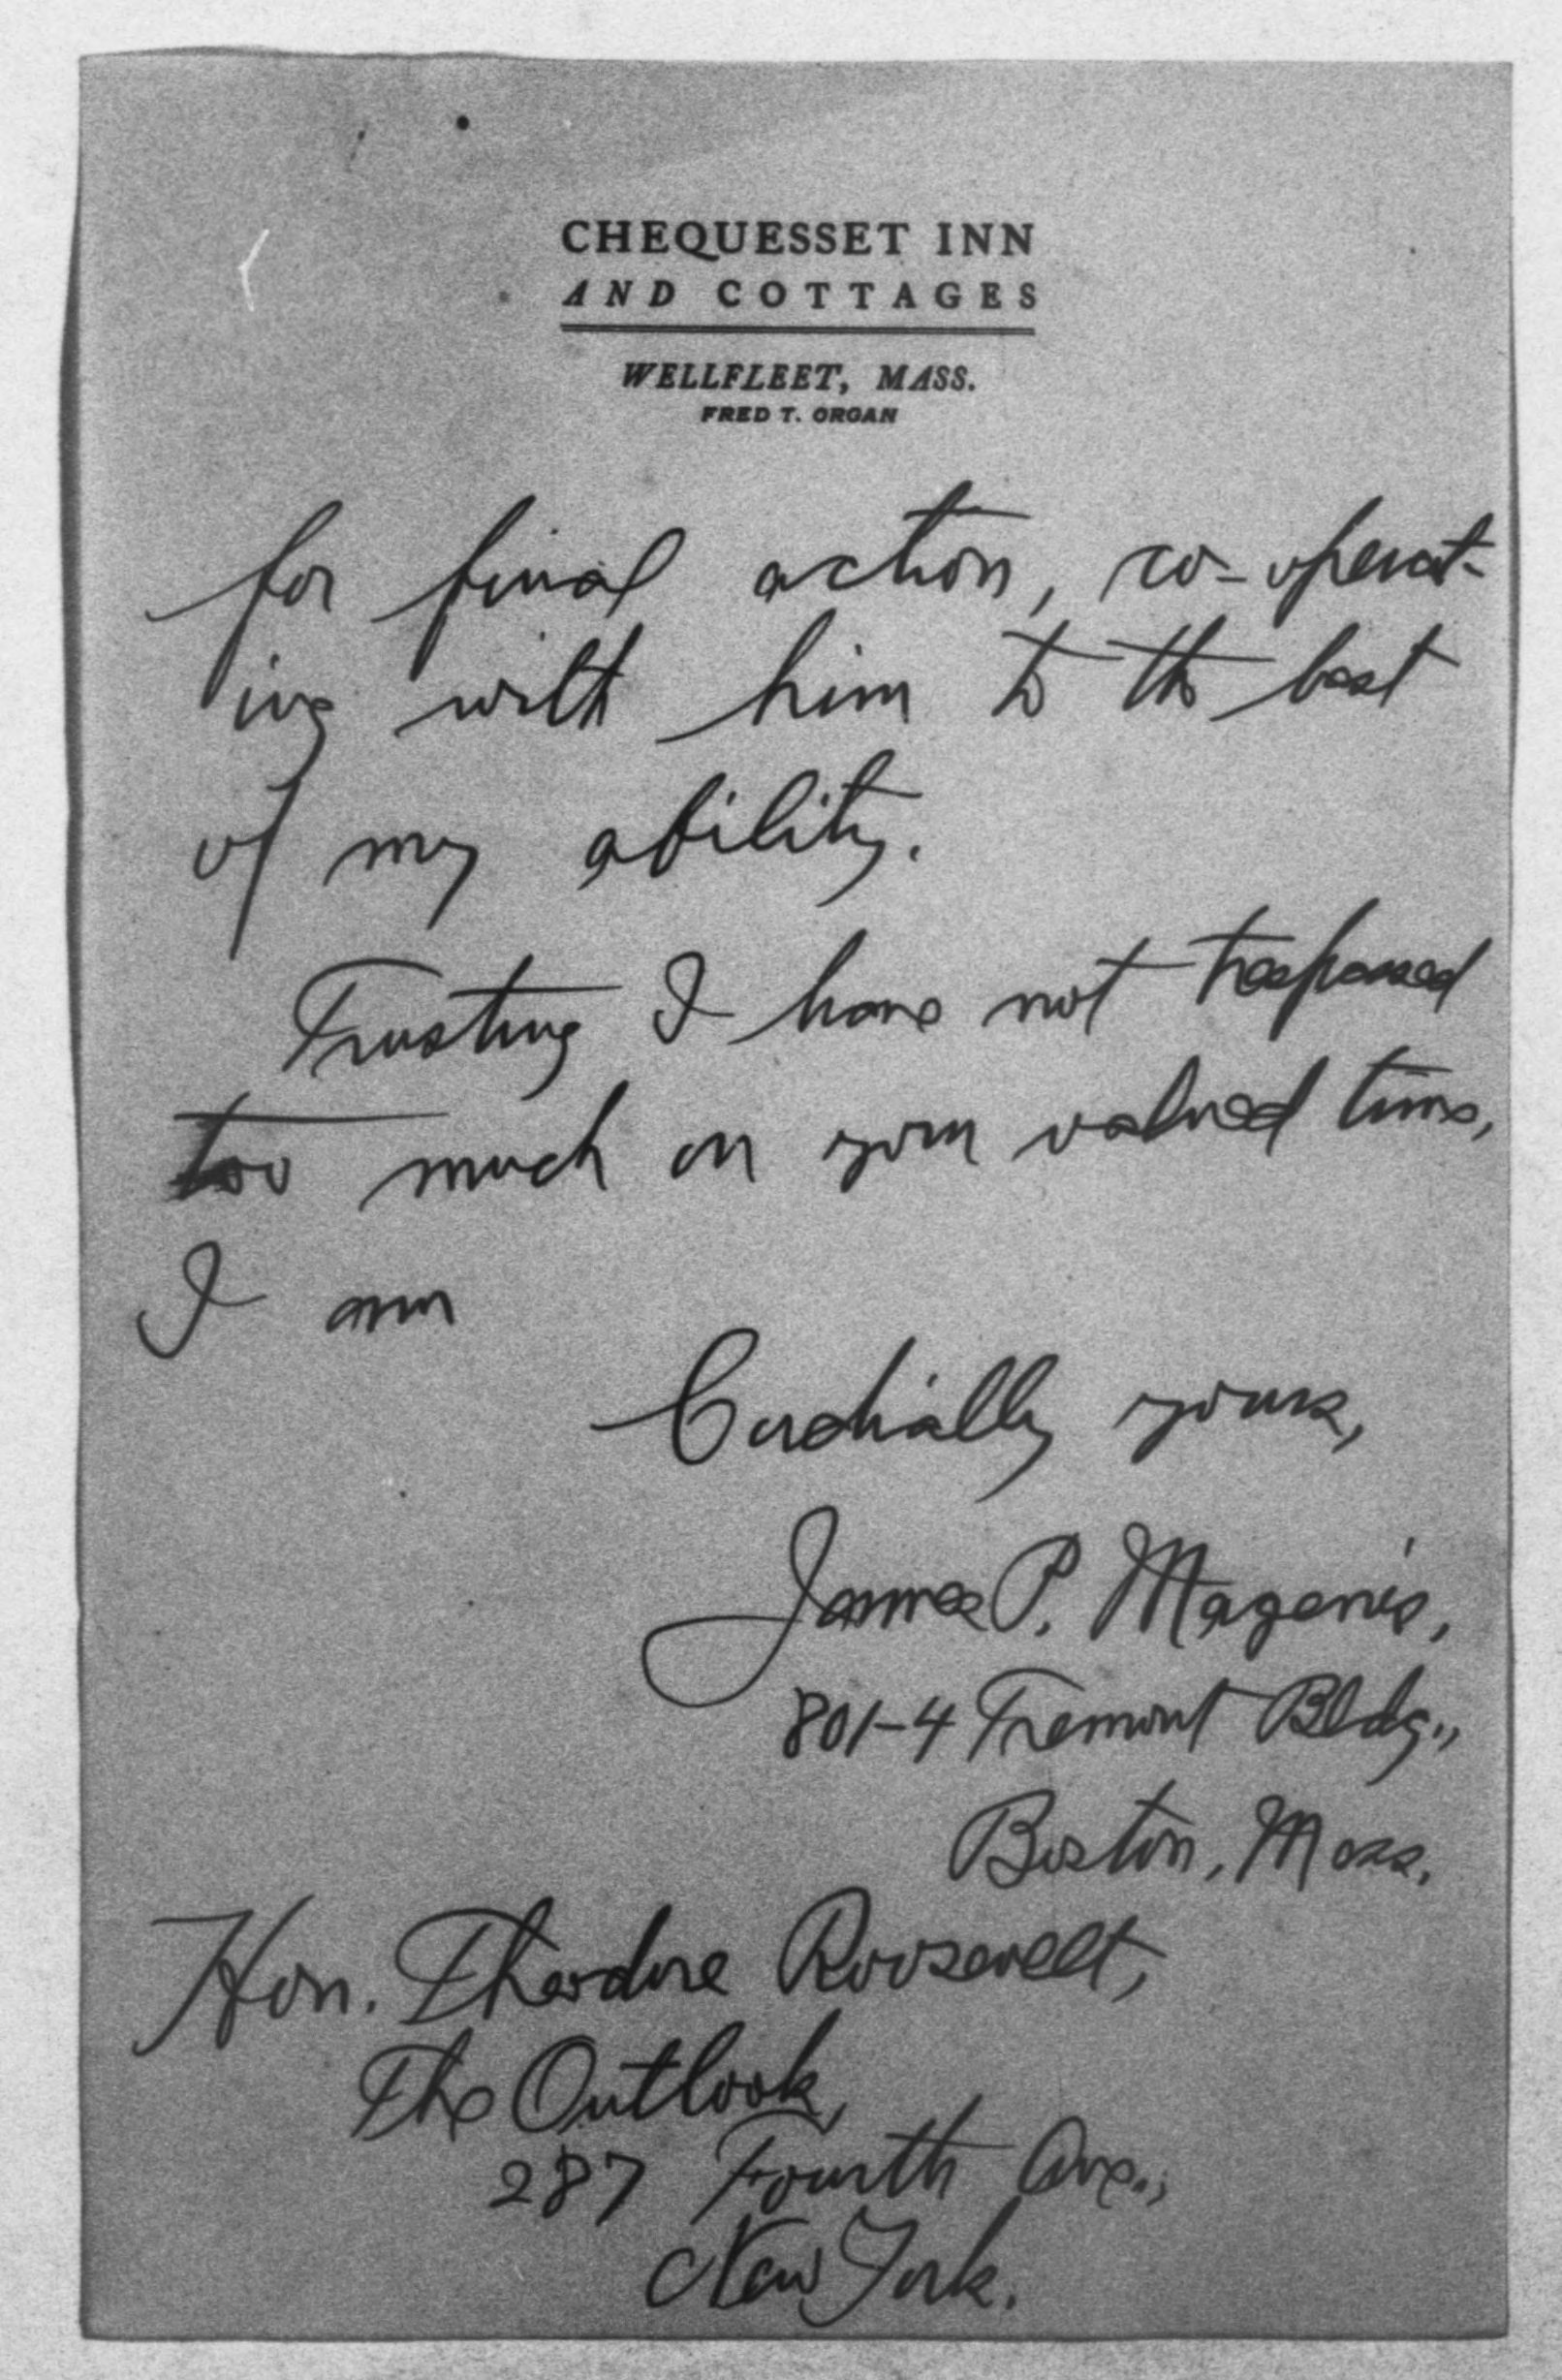 CHEQUESSET INN
AND COTTAGES
WELLFLEET, MASS.
FRED T. ORGAN
for final action, co-operat-
ing with him to the best
of my ability.
Trusting I have not trespassed
too much on your valued time,
I am
Cordially yours,
James P. Magenis,
801-4 Tremont Bldg.,
Boston, Mass.
Hon. Theodore Roosevelt,
The Outlook,
287 Fourth Ave.,
New York.